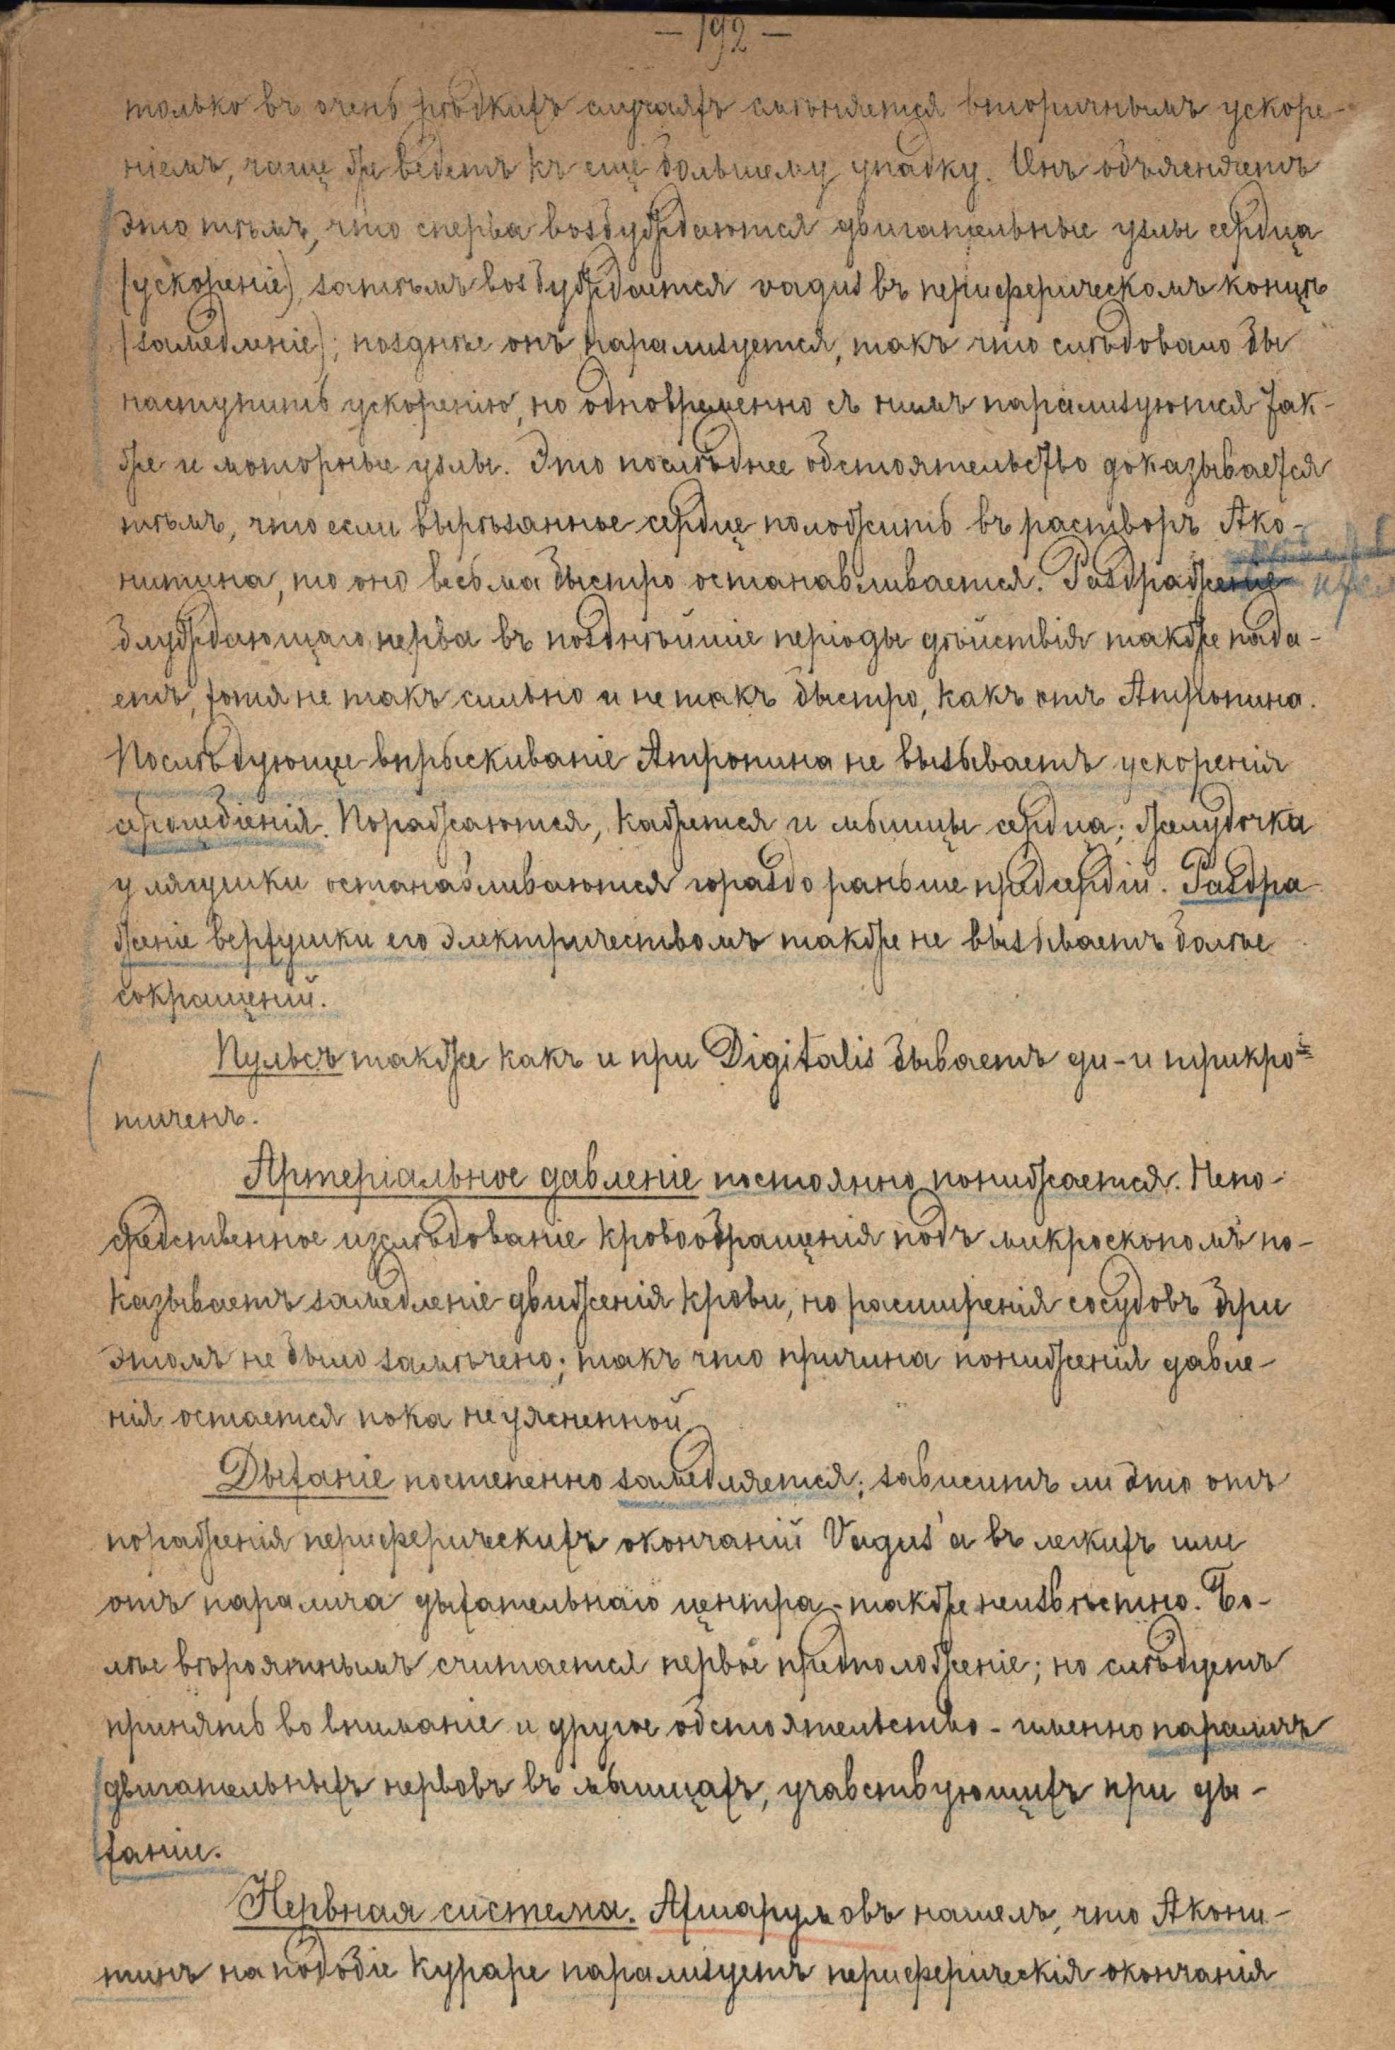 — 192 —
только въ очень рѣдкихъ случаяхъ смѣняется вторичнымъ ускоре-
ніемъ, чаще же ведетъ къ еще большему упадку. Онъ объясняетъ
это тѣмъ, что сперва возбуждаются двигательные узлы сердца
(ускореніе), затѣмъ возбуждается vagus въ периферическомъ концѣ
(замедленіе); позднѣе онъ парализуется, такъ что слѣдовало бы
наступить ускоренію, но одновременно съ нимъ парализуются так-
же и моторные узлы. Это послѣднее обстоятельство доказывается
тѣмъ, что если вырѣзанное сердце положить въ растворъ Ако-
нитина, то оно весьма быстро останавливается. Раздраженіе
блуждающаго нерва въ позднѣйшіе періоды дѣйствія также пада-
етъ, хотя не такъ сильно и не такъ быстро, какъ отъ Атропина.
Послѣдующее впрыскиваніе Атропина не вызываетъ ускоренія
сердцебіенія. Поражаются, кажется и мышцы сердца; желудочка
у лягушки останавливаются гораздо раньше предсердій. Раздра
женіе верхушки его электричествомъ также не вызываетъ болѣе
сокращеній.
Пульсъ также какъ и при Digitalis бываетъ ди- и трикро-
тиченъ.
Артеріальное давленіе постоянно понижается. Непо-
средственное изслѣдованіе кровообращенія подъ микроскопомъ по-
казываетъ замедленіе движенія крови, но расширенія сосудовъ при
этомъ не было замѣчено; такъ что причина пониженія давле-
нія остается пока неуясненной.
Дыханіе постепенно замедляется; зависитъ ли это отъ
пораженія периферическихъ окончаній Vagus'а въ легкихъ или
отъ паралича дыхательнаго центра - также неизвѣстно. Бо-
лѣе вѣроятнымъ считается первое предположеніе; но слѣдуетъ
принять во вниманіе и другое обстоятельство - именно параличъ
двигательныхъ нервовъ въ мышцахъ, учавствующихъ при ды-
ханіи.
Нервная система. Ахшарумовъ нашелъ, что Акони-
тинъ на подобіе Кураре парализуетъ периферическія окончанія